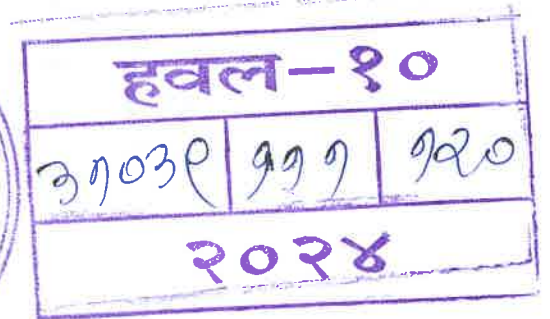 हवल-१०
३१०३९ | १११ | १२०
२०२४